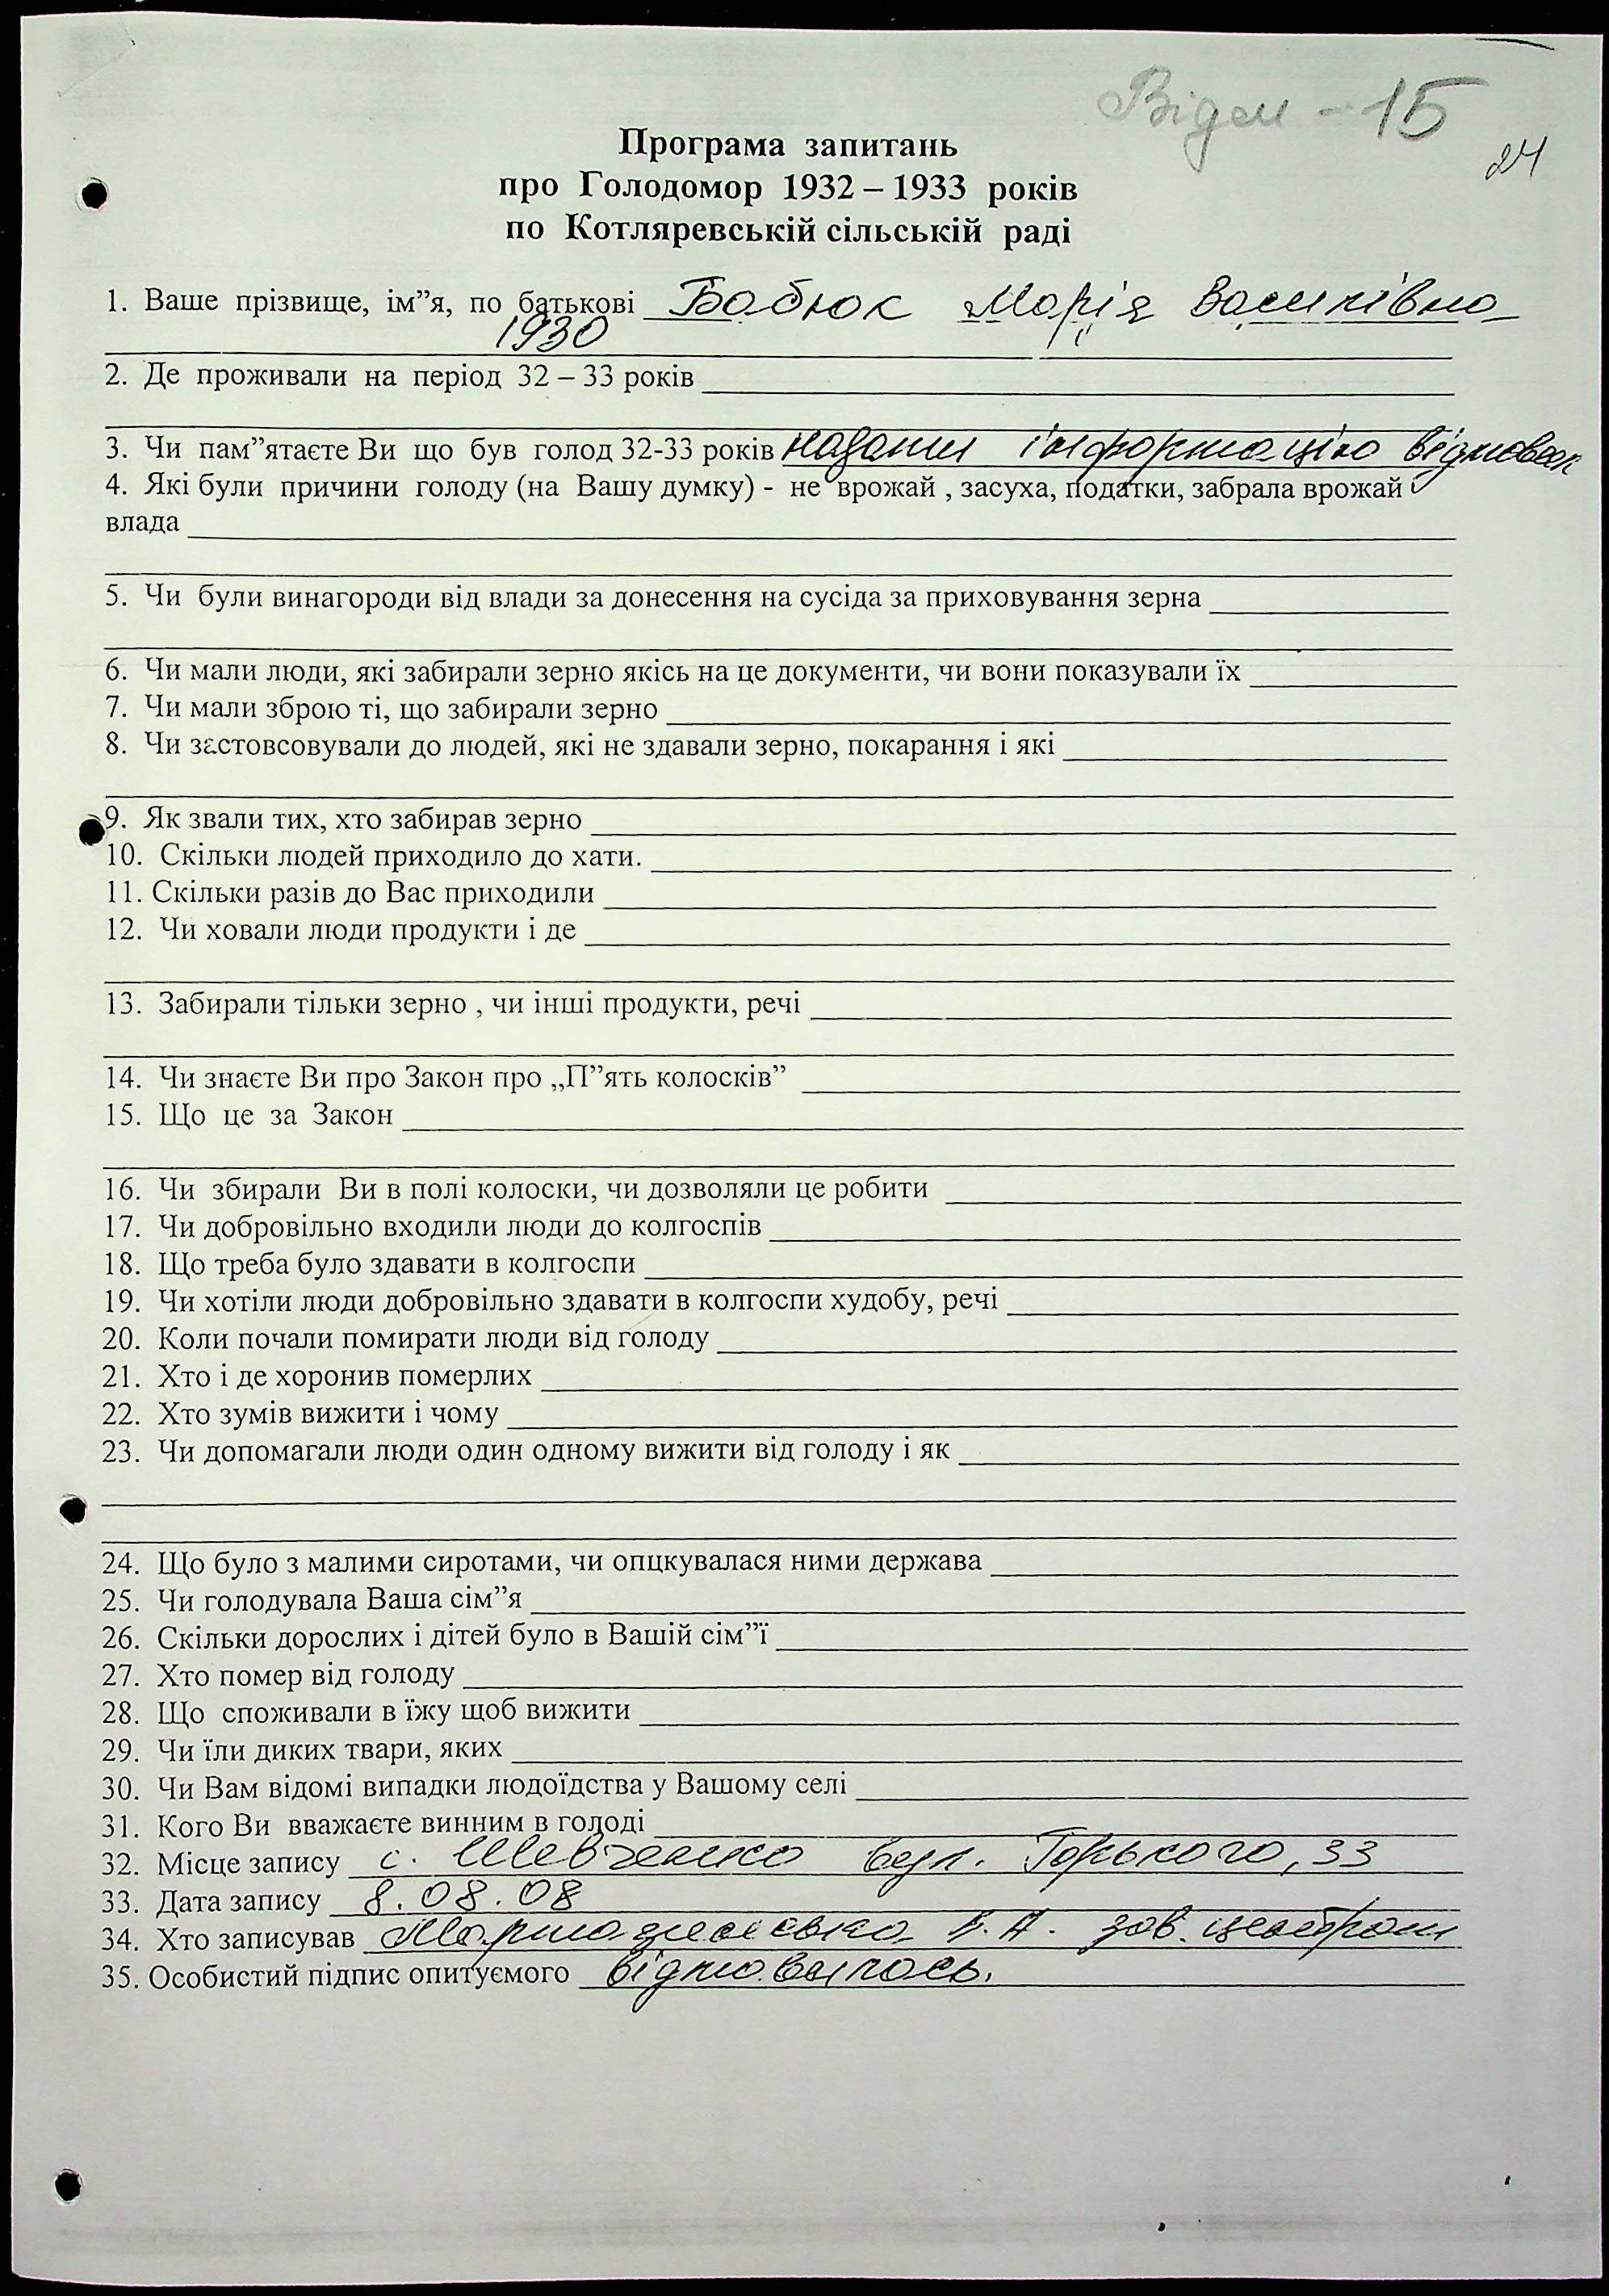 Відм - 15
24
Програма запитань
про Голодомор 1932 – 1933 років
по Котляревській сільській раді
1. Ваше прізвище, ім”я, по батькові Бабюк Марія Василівна
1930
2. Де проживали на період 32 – 33 років
3. Чи пам”ятаєте Ви що був голод 32-33 років надати інформацію
4. Які були причини голоду (на Вашу думку) - не врожай , засуха, податки, забрала врожай
влада
5. Чи були винагороди від влади за донесення на сусіда за приховування зерна
6. Чи мали люди, які забирали зерно якісь на це документи, чи вони показували їх
7. Чи мали зброю ті, що забирали зерно
8. Чи застовсовували до людей, які не здавали зерно, покарання і які
9. Як звали тих, хто забирав зерно
10. Скільки людей приходило до хати.
11. Скільки разів до Вас приходили
12. Чи ховали люди продукти і де
13. Забирали тільки зерно , чи інші продукти, речі
14. Чи знаєте Ви про Закон про „П”ять колосків”
15. Що це за Закон
16. Чи збирали Ви в полі колоски, чи дозволяли це робити
17. Чи добровільно входили люди до колгоспів
18. Що треба було здавати в колгоспи
19. Чи хотіли люди добровільно здавати в колгоспи худобу, речі
20. Коли почали помирати люди від голоду
21. Хто і де хоронив померлих
22. Хто зумів вижити і чому
23. Чи допомагали люди один одному вижити від голоду і як
24. Що було з малими сиротами, чи опцкувалася ними держава
25. Чи голодувала Ваша сім”я
26. Скільки дорослих і дітей було в Вашій сім”ї
27. Хто помер від голоду
28. Що споживали в їжу щоб вижити
29. Чи їли диких твари, яких
30. Чи Вам відомі випадки людоїдства у Вашому селі
31. Кого Ви вважаєте винним в голоді
32. Місце запису с. Шевченко вул. Горького, 33
33. Дата запису 8.08.08
34. Хто записував зав. центром
35. Особистий підпис опитуємого відмовилась.